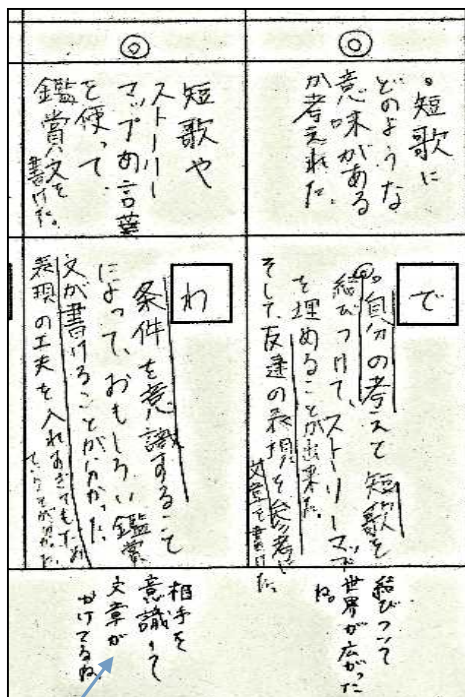 ◎
・短歌に
どのような
意味がある
か考えれた。
で
自分の考えと短歌を
結びつけて、ストーリーマップ
を埋めることが出来た。
そして友達の表現を参考に
文章を書けた。
結びついて
世界が広がった
ね。
◎
短歌や
ストーリー
マップの言葉
を使って
鑑賞文を
書けた。
わ
条件を意識すること
によって、おもしろい鑑賞
文が書けることが分かった。
表現の工夫を入れすぎてもだめ
相手を
意識して
文章が
かけてるね